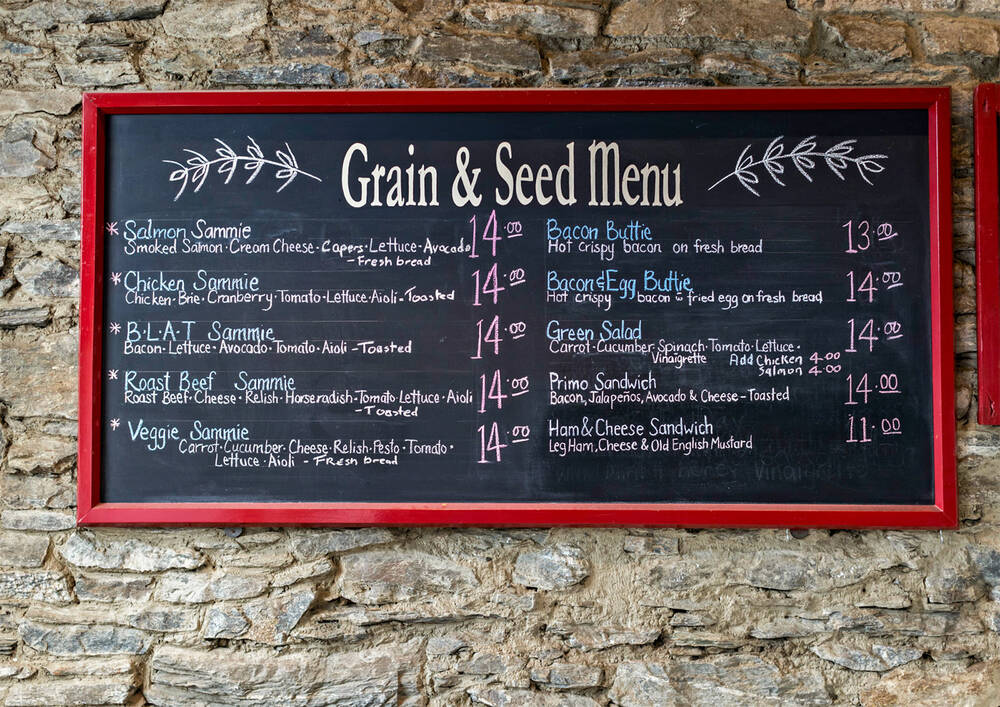 Grain & Seed Menu
* Salmon Sammie 14.00
Smoked Salmon · Cream Cheese · Capers · Lettuce · Avocado
- Fresh bread
* Chicken Sammie 14.00
Chicken · Brie · Cranberry · Tomato · Lettuce · Aioli - Toasted
* B·L·A·T Sammie 14.00
Bacon · Lettuce · Avocado · Tomato · Aioli - Toasted
* Roast Beef Sammie 14.00
Roast Beef · Cheese · Relish · Horseradish · Tomato · Lettuce · Aioli
- Toasted
* Veggie Sammie 14.00
Carrot · Cucumber · Cheese · Relish · Pesto · Tomato ·
Lettuce · Aioli - Fresh bread
Bacon Buttie 13.00
Hot crispy bacon on fresh bread
Bacon & Egg Buttie 14.00
Hot crispy bacon w fried egg on fresh bread
Green Salad 14.00
Carrot · Cucumber · Spinach · Tomato · Lettuce ·
Vinaigrette Add Chicken 4.00
Salmon 4.00
Primo Sandwich 14.00
Bacon, Jalapeños, Avocado & Cheese - Toasted
Ham & Cheese Sandwich 11.00
Leg Ham, Cheese & Old English Mustard